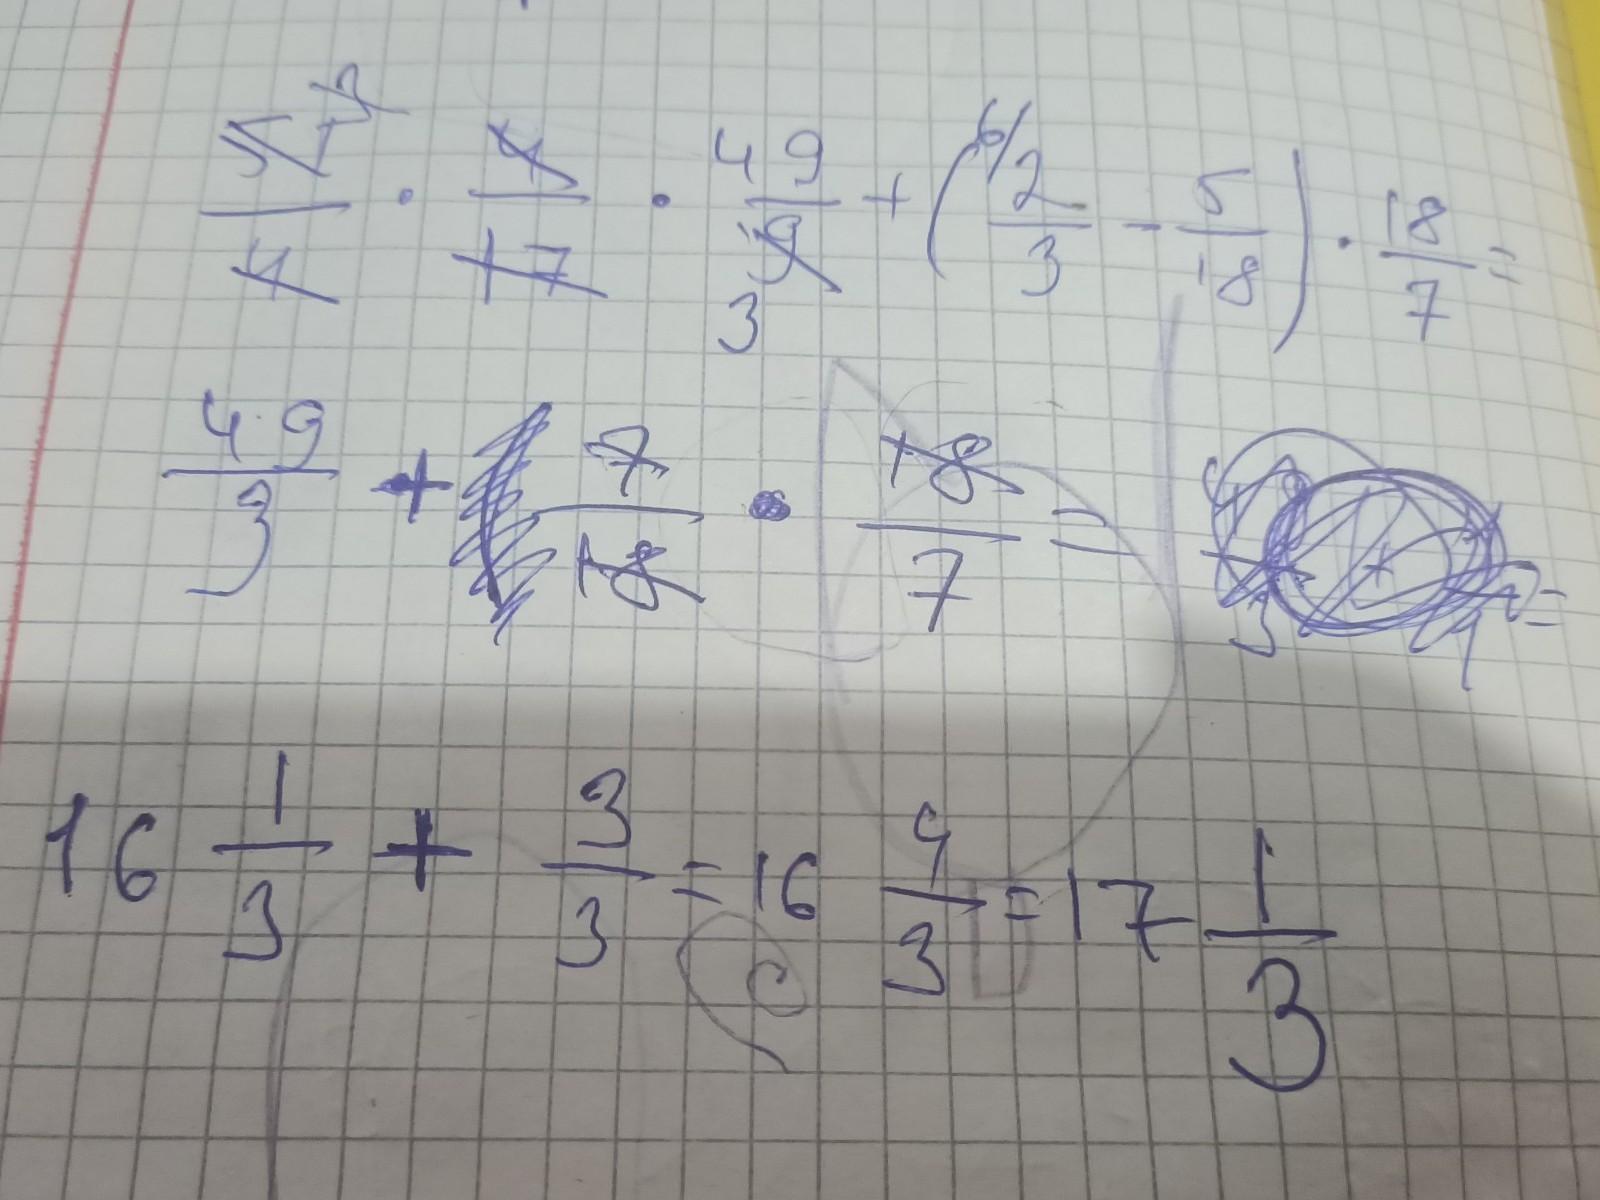 51 3/4 · 4/17 · 49/9 3 + (6/ 2/3 - 5/18) · 18/7 =
49/3 + 7/18 · 18/7 =
16 1/3 + 3/3 = 16 4/3 = 17 1/3